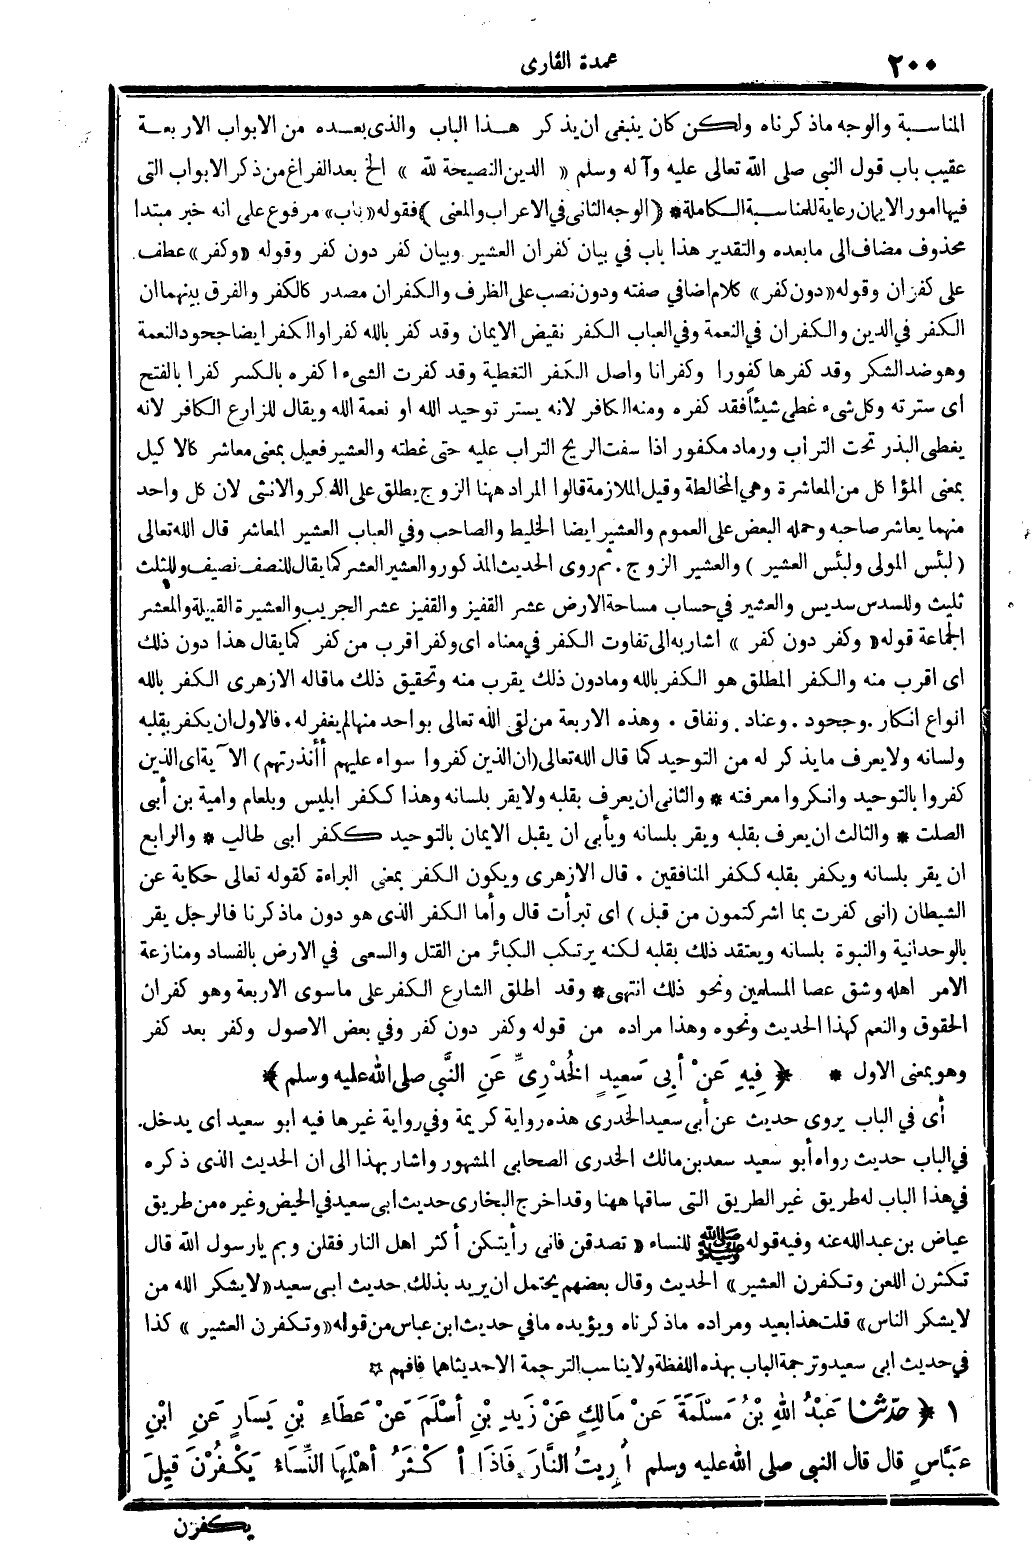 ٢٠٠ عمدة القارى
المناسبة والوجه ماذكرناه ولكن كان ينبغى ان يذكر هذا الباب والذى بعده من الابواب الاربعة
عقيب باب قول النبى صلى الله تعالى عليه وآله وسلم « الدين النصيحة لله » الخ بعد الفراغ من ذكر الابواب التى
فيها امور الايمان رعاية للمناسبة الكاملة * (الوجه الثانى فى الاعراب والمعنى) فقوله «باب» مرفوع على انه خبر مبتدا
محذوف مضاف الى مابعده والتقدير هذا باب في بيان كفران العشير وبيان كفر دون كفر وقوله «وكفر» عطف
على كفران وقوله «دون كفر» كلام اضافي صفته ودون نصب على الظرف والكفران مصدر كالكفر والفرق بينهما ان
الكفر في الدين والكفران في النعمة وفي العباب الكفر نقيض الايمان وقد كفر بالله كفرا والكفر ايضا جحود النعمة
وهو ضد الشكر وقد كفرها كفورا وكفرانا واصل الكفر التغطية وقد كفرت الشىء اكفره بالكسر كفرا بالفتح
اى سترته وكل شىء غطى شيئاً فقد كفره ومنه الكافر لانه يستر توحيد الله او نعمة الله ويقال للزارع الكافر لانه
يغطى البذر تحت التراب ورماد مكفور اذا سفت الريح التراب عليه حتى غطته والعشير فعيل بمعنى معاشر كالاكيل
بمعنى المؤاكل من المعاشرة وهي المخالطة وقيل الملازمة قالوا المراد ههنا الزوج يطلق على الذكر والانثى لان كل واحد
منهما يعاشر صاحبه وحمله البعض على العموم والعشير ايضا الخليط والصاحب وفي العباب العشير المعاشر قال الله تعالى
(لبئس المولى ولبئس العشير) والعشير الزوج . ثم روى الحديث المذكور والعشير العشر كما يقال للنصف نصيف وللثلث
ثليث وللسدس سديس والعشير في حساب مساحة الارض عشر القفيز والقفيز عشر الجريب والعشيرة القبيلة والمعشر
الجماعة قوله « وكفر دون كفر » اشار به الى تفاوت الكفر في معناه اى وكفر اقرب من كفر كما يقال هذا دون ذلك
اى اقرب منه والكفر المطلق هو الكفر بالله ومادون ذلك يقرب منه وتحقيق ذلك ماقاله الازهرى الكفر بالله
انواع انكار . وجحود . وعناد . ونفاق . وهذه الاربعة من لقى الله تعالى بواحد منها لم يغفر له . فالاول ان يكفر بقلبه
ولسانه ولا يعرف مايذكر له من التوحيد كما قال الله تعالى (ان الذين كفروا سواء عليهم أأنذرتهم) الآية اى الذين
كفروا بالتوحيد وانكروا معرفته * والثانى ان يعرف بقلبه ولا يقر بلسانه وهذا ككفر ابليس وبلعام وامية بن أبى
الصلت * والثالث ان يعرف بقلبه ويقر بلسانه ويأبى ان يقبل الايمان بالتوحيد ككفر ابى طالب * والرابع
ان يقر بلسانه ويكفر بقلبه ككفر المنافقين . قال الازهرى ويكون الكفر بمعنى البراءة كقوله تعالى حكاية عن
الشيطان (انى كفرت بما اشركتمون من قبل) اى تبرأت قال وأما الكفر الذى هو دون ماذكرنا فالرجل يقر
بالوحدانية والنبوة بلسانه ويعتقد ذلك بقلبه لكنه يرتكب الكبائر من القتل والسعى في الارض بالفساد ومنازعة
الامر اهله وشق عصا المسلمين ونحو ذلك انتهى * وقد اطلق الشارع الكفر على ماسوى الاربعة وهو كفران
الحقوق والنعم كهذا الحديث ونحوه وهذا مراده من قوله وكفر دون كفر وفي بعض الاصول وكفر بعد كفر
وهو بمعنى الاول * ﴿ فِيهِ عَنْ أَبِى سَعِيدٍ الخُدْرِىِّ عَنِ النَّبِي صلى الله عليه وسلم ﴾
أى في الباب يروى حديث عن أبى سعيد الخدرى هذه رواية كريمة وفي رواية غيرها فيه ابو سعيد اى يدخل
في الباب حديث رواه أبو سعيد سعد بن مالك الخدرى الصحابى المشهور واشار بهذا الى ان الحديث الذى ذكره
في هذا الباب له طريق غير الطريق التى ساقها ههنا وقد اخرج البخارى حديث ابى سعيد في الحيض وغيره من طريق
عياض بن عبد الله عنه وفيه قوله ﷺ للنساء « تصدقن فانى رأيتكن أكثر اهل النار فقلن وبم يارسول الله قال
تكثرن اللعن وتكفرن العشير » الحديث وقال بعضهم يحتمل ان يريد بذلك حديث ابى سعيد «لايشكر الله من
لايشكر الناس» قلت هذا بعيد ومراده ماذكرناه ويؤيده مافي حديث ابن عباس من قوله «وتكفرن العشير » كذا
في حديث ابى سعيد وترجمة الباب بهذه اللفظة ولا يناسب الترجمة الاحديثاهما فافهم *
١ ﴿ حدّثنا عَبْدُ اللهِ بْنُ مَسْلَمَةَ عَنْ مَالِكٍ عَنْ زَيدِ بْنِ أسْلَمَ عَنْ عَطَاءِ بْنِ يَسَارٍ عَنِ ابْنِ
عَبَّاسٍ قال قال النبى صلى الله عليه وسلم أُرِيتُ النَّارَ فَاذَا أكْثَرُ أهْلِهَا النِّسَاءُ يَكْفُرْنَ قِيلَ
يكفرن